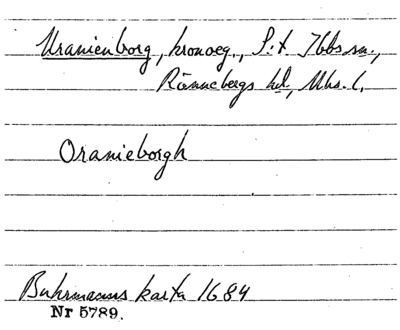 Uranienborg, kronoeg., S:t Ibbs sn.,
Rönnebergs hd, Mhs. l.
Oranieborgh
Buhrmanns karta 1684
Nr 5789.